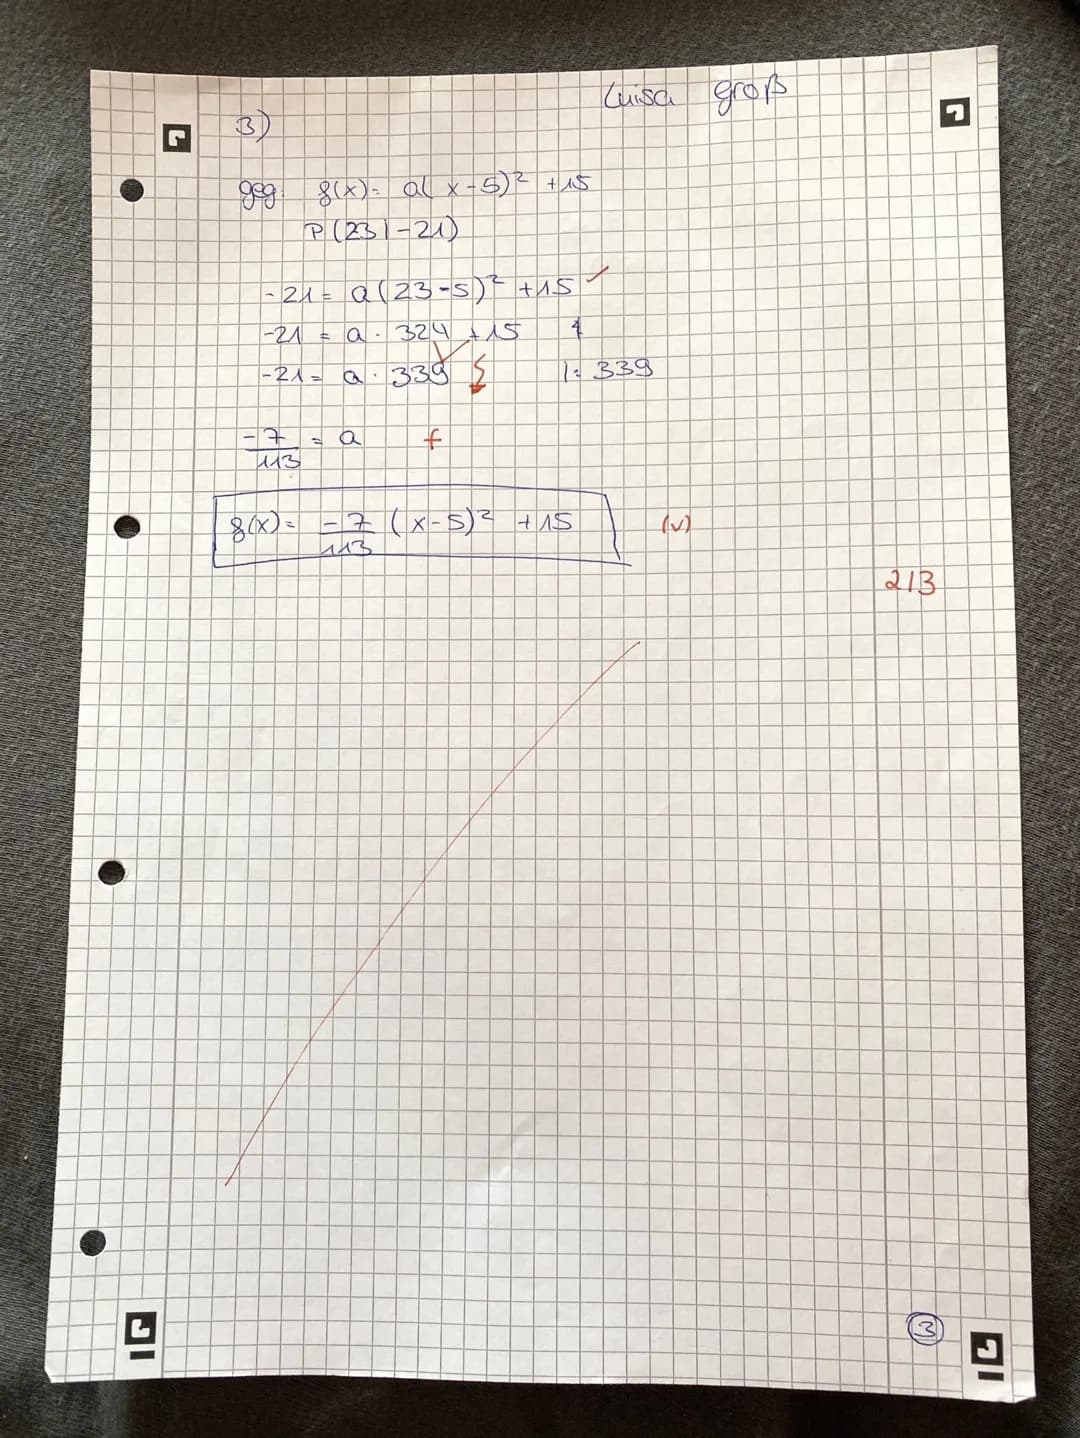 Luisa groß
3)
geg: f(x) = a( x - 5)² + 15
P(23 | -21)
-21 = a(23-5)² + 15 ✓
-21 = a · 324 + 15
-21 = a · 339 |: 339
-7/113 = a f
f(x) = -7/113 (x-5)² + 15 (v)
2/3
3